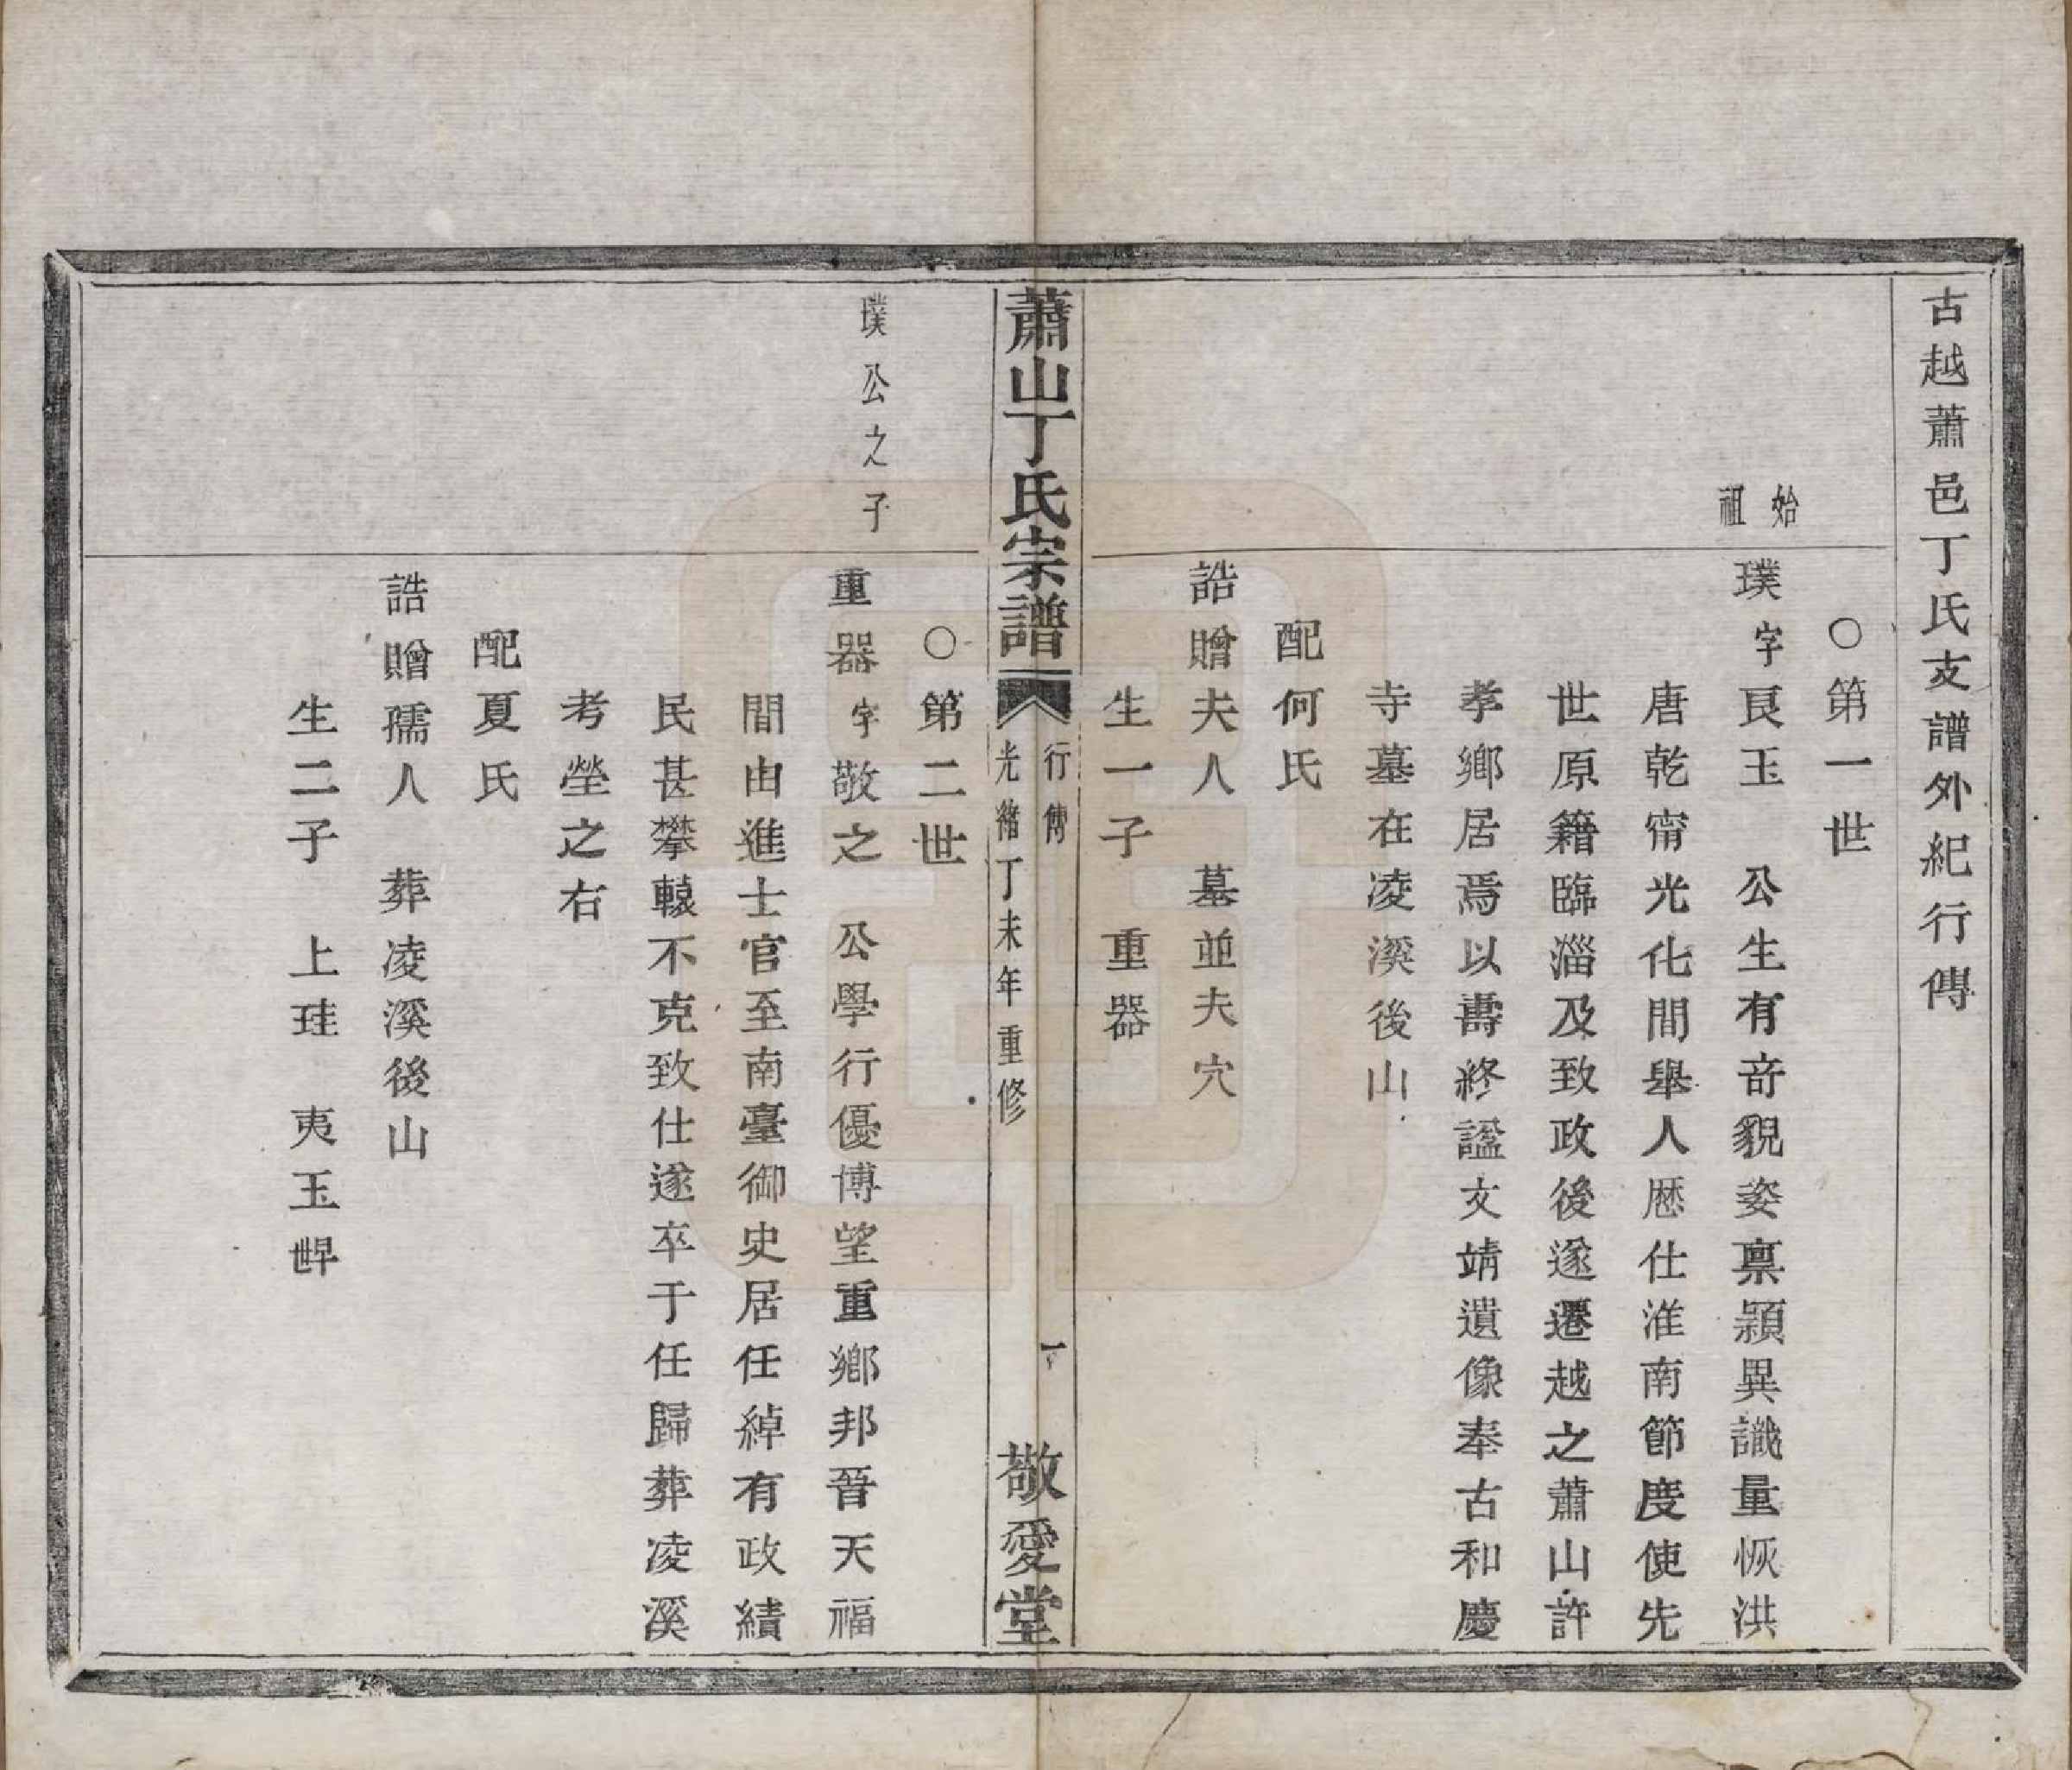 古越蕭邑丁氏支譜外紀行傳
○第一世
始祖
璞字良玉　公生有奇貌姿禀穎異識量恢洪
唐乾甯光化間舉人歷仕淮南節度使先
世原籍臨淄及致政後遂遷越之蕭山許
孝鄉居焉以壽終諡文靖遺像奉古和慶
寺墓在凌溪後山
配何氏
誥贈夫人　墓並夫穴
生一子　重器
蕭山丁氏宗譜
行傳
一
光緒丁未年重修
敬愛堂
○第二世
璞公之子
重器字敬之　公學行優博望重鄉邦晉天福
間由進士官至南臺御史居任綽有政績
民甚攀轅不克致仕遂卒于任歸葬凌溪
考塋之右
配夏氏
誥贈孺人　葬凌溪後山
生二子　上珪　夷玉